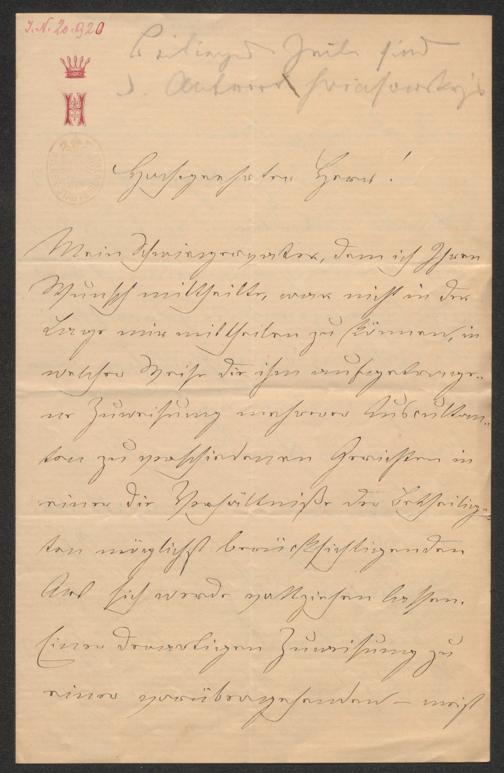 I.N. 20.920
H
Hochgeehrter Herr!
Mein Schwiegervater, dem ich Ihren
Wunsch mittheilte, war nicht in der
Lage mir mittheilen zu können, in
welcher Weise die ihm aufgetrage-
ne Zuweisung mehrerer Auscultan-
ten zu verschiedenen Gerichten in
einer die Verhältniße der Betheilig-
ten möglichst berücksichtigenden
Art sich werde vollziehen lassen.
Einer derartigen Zuweisung zu
einer vorübergehenden – meist